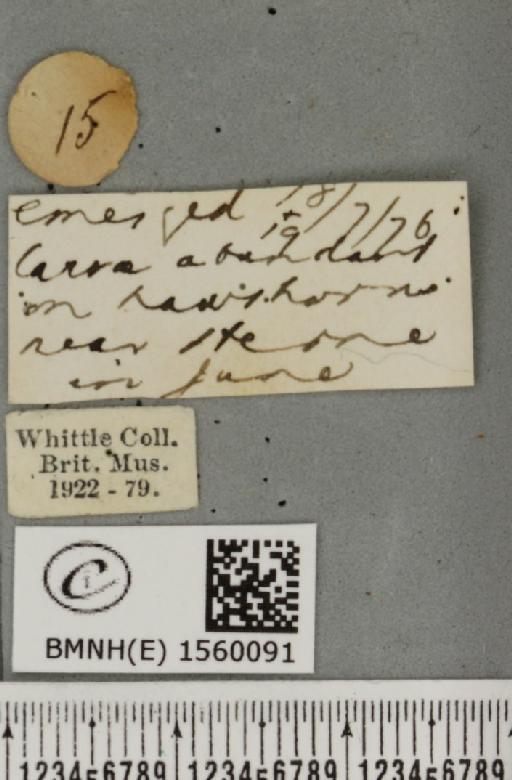 15
emerged 18/7/76.
+ 19
larva abundant
on hawthorne
near Herne
in June
Whittle Coll.
Brit. Mus.
1922 - 79.
BMNH(E) 1560091
123456789 123456789 123456789